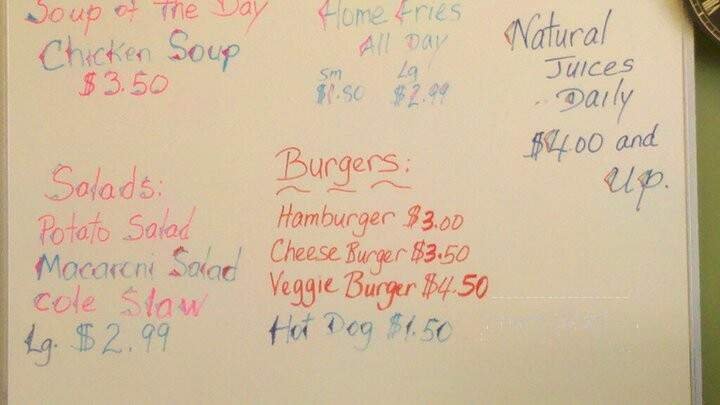 Soup of The Day
Chicken Soup
$3.50
Home Fries
All Day
Sm Lg
$1.80 $2.99
Natural
Juices
Daily
$4.00 and
Up.
Salads:
Potato Salad
Macaroni Salad
Cole Slaw
Lg. $2.99
Burgers:
Hamburger $3.00
Cheese Burger $3.50
Veggie Burger $4.50
Hot Dog $1.50